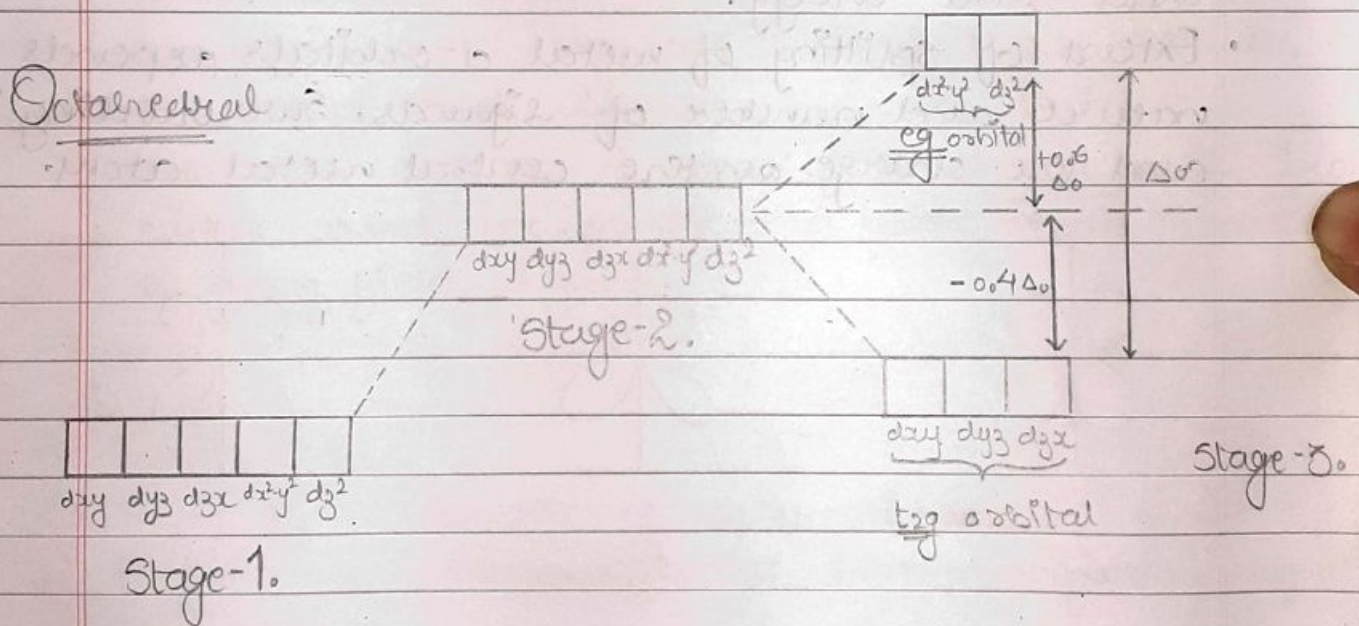 Octahedral
dx²-y² dz²
eg orbital
+0.6
Δo
Δo
dxy dyz dzx dx²-y² dz²
-0.4Δo
Stage-2.
dxy dyz dzx
Stage-3.
dxy dyz dzx dx²-y² dz²
t2g orbital
Stage-1.